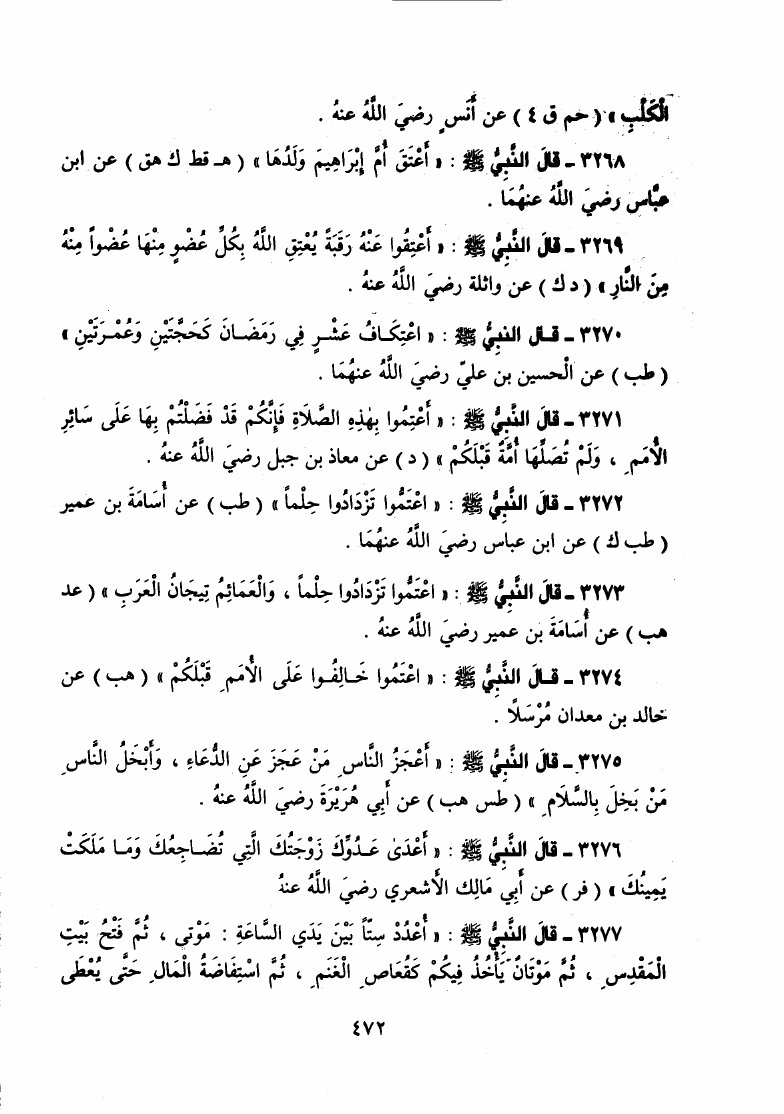 الْكَلْبِ » ( حم ق ٤ ) عن أَنَسٍ رضيَ اللَّهُ عنهُ .
٣٢٦٨ - قالَ النَّبِيُّ ﷺ : « أَعْتَقَ أُمَّ إِبْرَاهِيمَ وَلَدُهَا » ( هـ قط ك هق ) عن ابن
عبَّاس رضيَ اللَّهُ عنهُمَا .
٣٢٦٩ - قالَ النَّبِيُّ ﷺ : « أَعْتِقُوا عَنْهُ رَقَبَةً يُعْتِقِ اللَّهُ بِكُلِّ عُضْوٍ مِنْهَا عُضْواً مِنْهُ
مِنَ النَّارِ » ( د ك ) عن واثلة رضيَ اللَّهُ عنهُ .
٣٢٧٠ - قـالَ النبِيُّ ﷺ : « اعْتِكَافُ عَشْـرٍ فِي رَمَضَـانَ كَحَجَّتَيْنِ وَعُمْـرَتَيْنِ »
( طب ) عن الْحسين بن عليّ رضيَ اللَّهُ عنهُمَا .
٣٢٧١ - قالَ النَّبِيُّ ﷺ : « أَعْتِمُوا بِهٰذِهِ الصَّلَاةِ فَإِنَّكُمْ قَدْ فَضَلْتُمْ بِهَا عَلَى سَائِرِ
الْأُمَمِ ، وَلَمْ تُصَلِّهَا أُمَّةٌ قَبْلَكُمْ » ( د ) عن معاذ بن جبل رضيَ اللَّهُ عنهُ .
٣٢٧٢ - قالَ النَّبِيُّ ﷺ : « اعْتَمُّوا تَزْدَادُوا حِلْماً » ( طب ) عن أُسَامَةَ بن عمير
( طب ك ) عن ابن عباس رضيَ اللَّهُ عنهُمَا .
٣٢٧٣ - قالَ النَّبِيُّ ﷺ : « اعْتَمُّوا تَزْدَادُوا حِلْماً ، وَالْعَمَائِمُ تِيجَانُ الْعَرَبِ » ( عد
هب ) عن أُسَامَةَ بن عمير رضيَ اللَّهُ عنهُ .
٣٢٧٤ - قـالَ النَّبِيُّ ﷺ : « اعْتَمُّوا خَـالِفُـوا عَلَى الْأُمَمِ قَبْلَكُمْ » ( هب ) عن
خالد بن معدان مُرْسَلًا .
٣٢٧٥ - قالَ النَّبِيُّ ﷺ : « أَعْجَزُ النَّاسِ مَنْ عَجَزَ عَنِ الدُّعَاءِ ، وَأَبْخَلُ النَّاسِ
مَنْ بَخِلَ بِالسَّلَامِ » ( طس هب ) عن أَبِي هُرَيْرَةَ رضيَ اللَّهُ عنهُ .
٣٢٧٦ - قالَ النَّبِيُّ ﷺ : « أَعْدَىٰ عَـدُوِّكَ زَوْجَتُكَ الَّتِي تُضَـاجِعُكَ وَمَـا مَلَكَتْ
يَمِينُكَ » ( فر ) عن أَبي مَالِك الأَشعري رضيَ اللَّهُ عنهُ
٣٢٧٧ - قالَ النَّبِيُّ ﷺ : « أُعْدُدْ سِتّاً بَيْنَ يَدَيِ السَّاعَةِ : مَوْتِي ، ثُمَّ فَتْحُ بَيْتِ
الْمَقْدِسِ ، ثُمَّ مَوْتَانٌ يَأْخُذُ فِيكُمْ كَقُعَاصِ الْغَنَمِ ، ثُمَّ اسْتِفَاضَةُ الْمَالِ حَتَّى يُعْطَى
٤٧٢